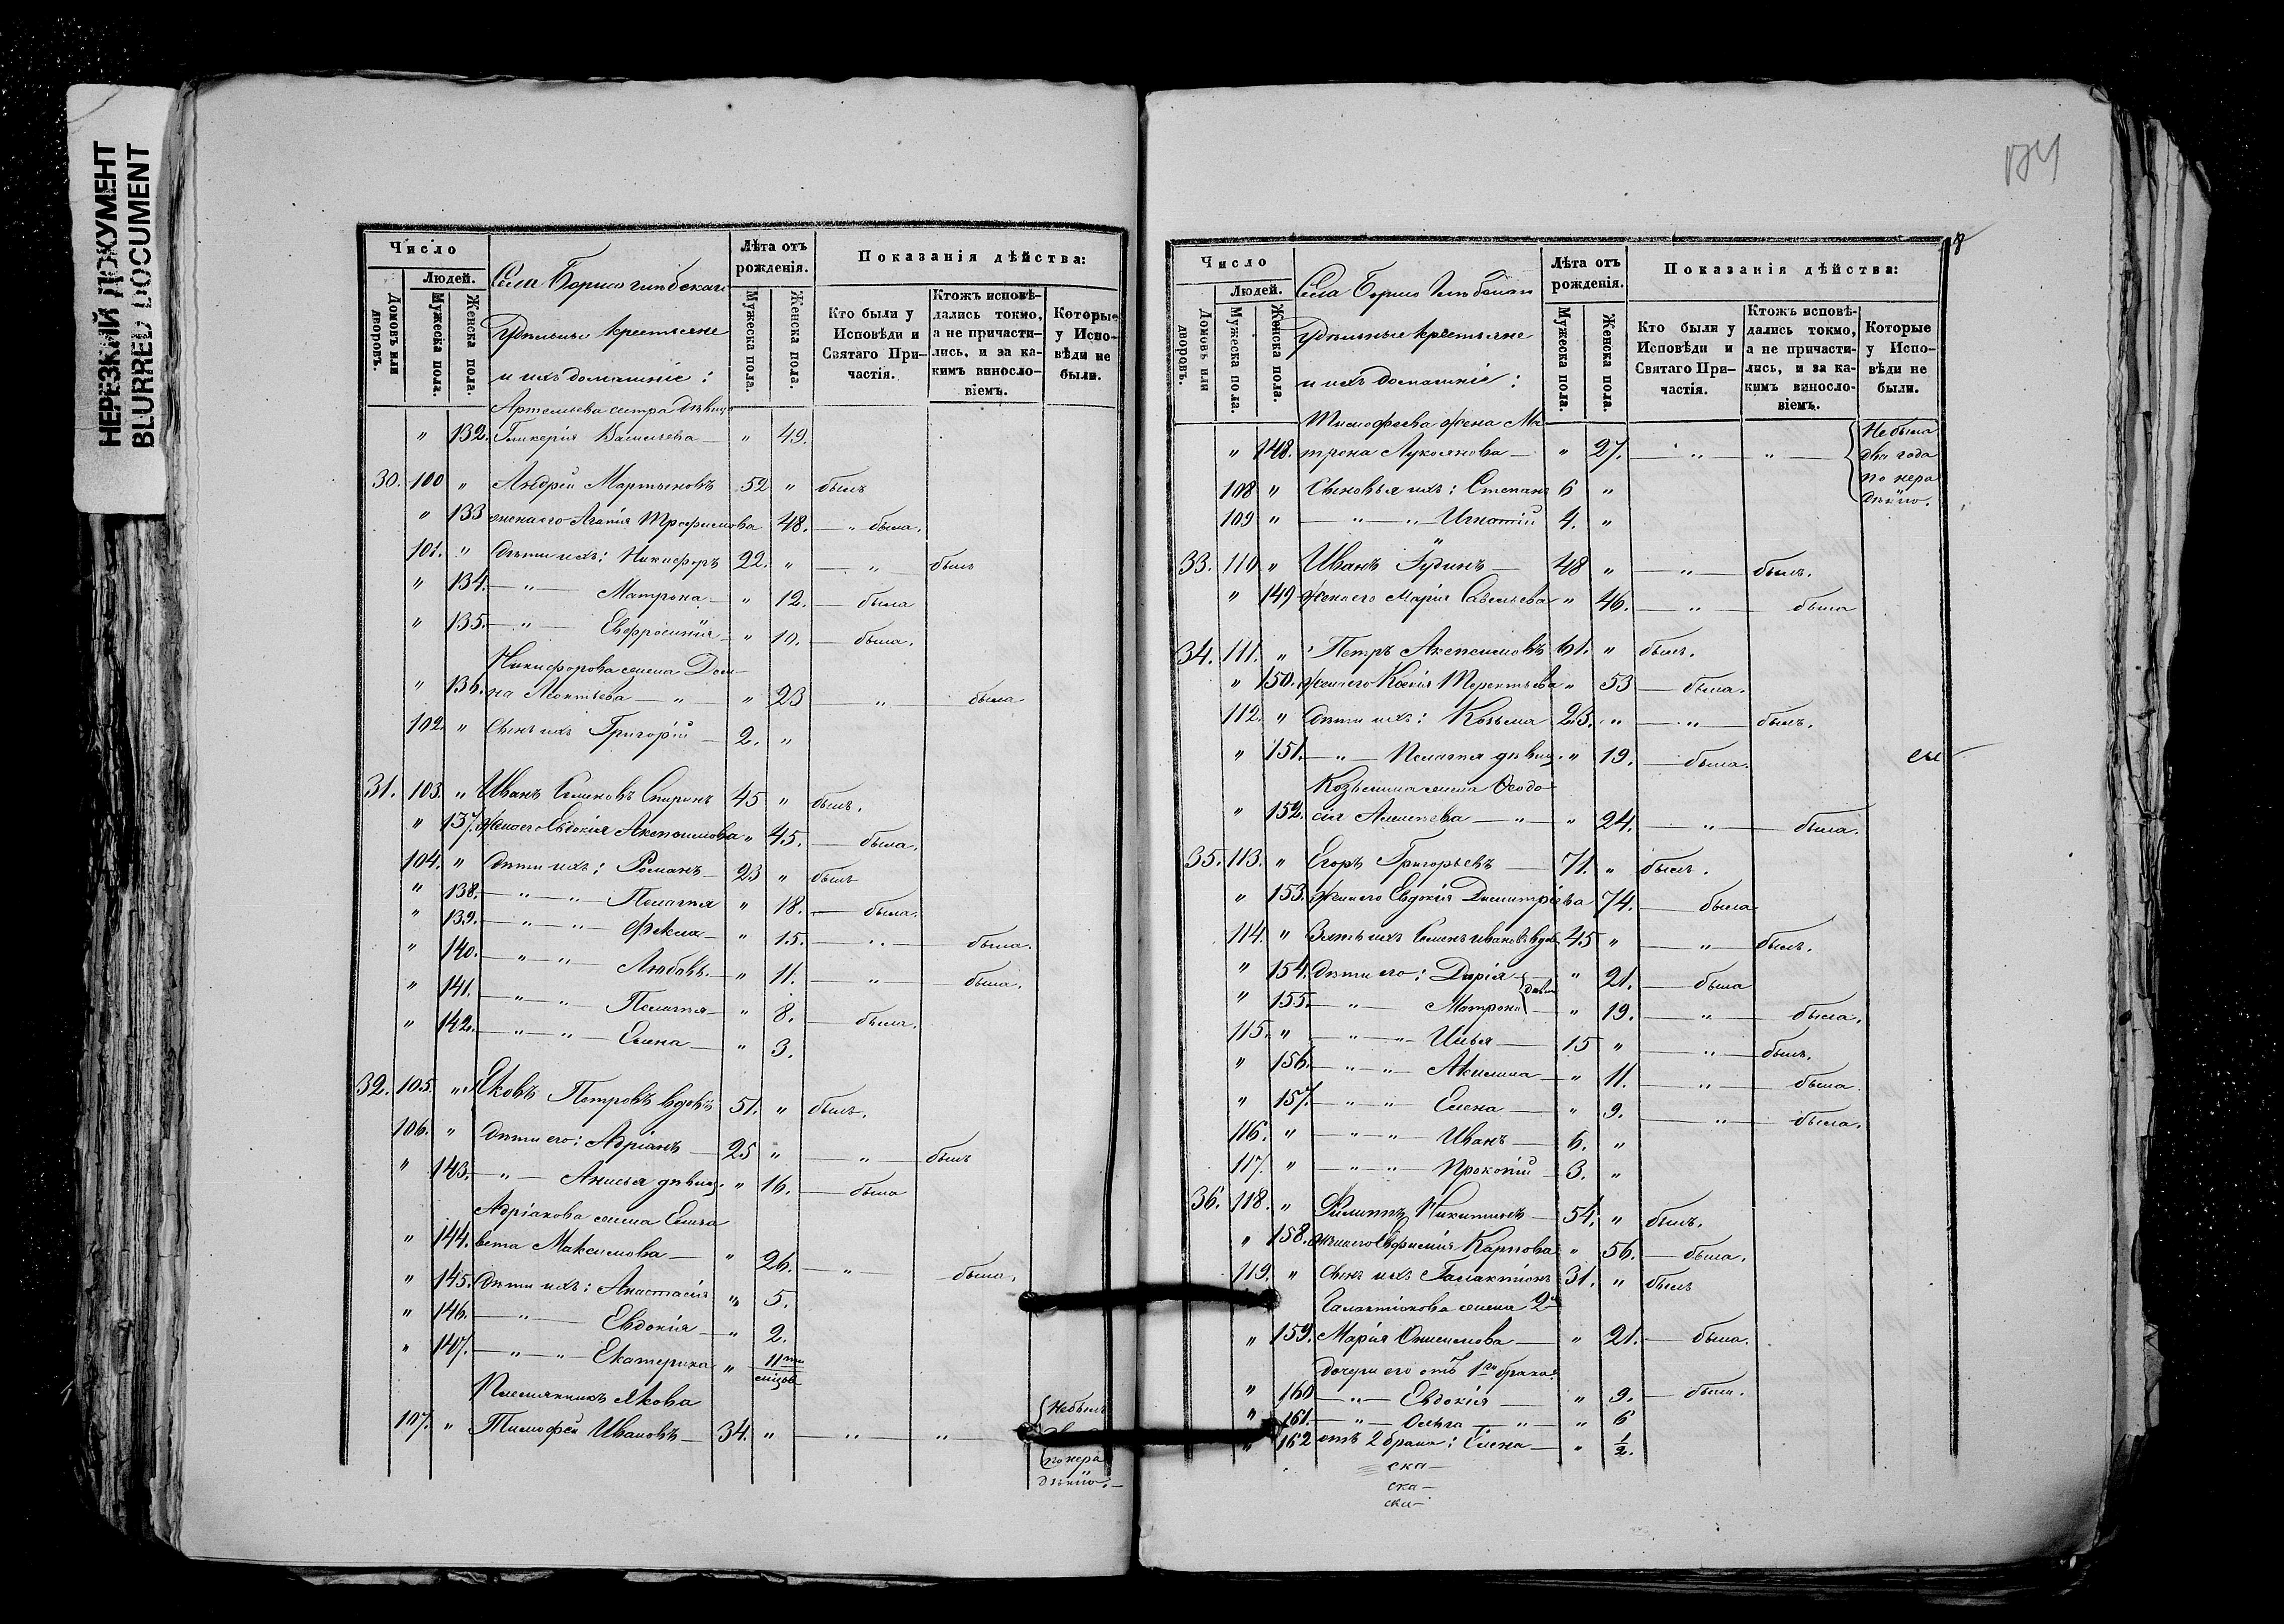 НЕРЕЗКИЙ ДОКУМЕНТ
BLURRED DOCUMENT
Число
Людей.
Домовъ или дворовъ.
Мужеска пола.
Женска пола.
Села Борисоглѣбскаго
Удѣльные крестьяне
и ихъ домашніе:
Лѣта отъ рожденія.
Мужеска пола.
Женска пола.
Показанія дѣйства:
Кто были у Исповѣди и Святаго Причастія.
Ктожъ исповѣдались токмо, а не причастились, и за какимъ винословіемъ.
Которые у Исповѣди не были.
Артемьева сестра дѣвица
" 132. Гликерія Васильева — " 49.
30. 100 " Андрей Мартыновъ 52 " былъ
" 133 жена его Агапія Трофимова 48. — " была.
101. " Дѣти ихъ: Никифоръ 22. " — " былъ
" 134. — " — Матрона — " 12. — была
" 135. — " — Евфросинія — " 10. — была.
Никифорова жена Дом-
" 136. на Леонтьева — " — " 23 — " — была
102. " Сынъ ихъ Григорій — 2. "
31. 103. " Иванъ Семеновъ Спиринъ 45 " былъ.
" 137. Жена его Евдокія Аксенова " 45. — была.
104. " Дѣти ихъ: Романъ — 23 " былъ
" 138. — " — " — Пелагея " 18. — была.
" 139. — " — " — Фекла — " 15. — " — была.
" 140. — " — " — Любовь — " 11. — " — была.
" 141. — " — " — Пелагея — " 8. — была.
" 142. — " — " — Елена — " 3.
32. 105. " Яковъ Петровъ вдовъ 51. " былъ.
106. " Дѣти его: Адріанъ — 25 " — " — былъ
" 143. — " — Анисья дѣвица " 16. — была
Адріанова жена Елиза
" 144. вета Максимова — " 26. — " — была.
" 145. Дѣти ихъ: Анастасія " 5.
" 146. — " — Евдокія — " 2.
" 147. — " — " — Екатерина " 11ти мѣсяц
Племянникъ Якова
107. " Тимофей Ивановъ — 34. " — " — " — Не былъ
по нера
дѣнію.
8
Число
Людей.
Домовъ или дворовъ.
Мужеска пола.
Женска пола.
Села Борисоглѣбскаго
Удѣльные крестьяне
и ихъ домашніе:
Лѣта отъ рожденія.
Мужеска пола.
Женска пола.
Показанія дѣйства:
Кто были у Исповѣди и Святаго Причастія.
Ктожъ исповѣдались токмо, а не причастились, и за какимъ винословіемъ.
Которые у Исповѣди не были.
Тимофеева жена Ма
" 148. трона Лукоянова — " 27. — " — " — Не была два года по нера дѣнію.
108 " Сыновья ихъ: Степанъ 6 "
109 " — " — " — Игнатій 4. "
33. 110 " Иванъ Юдинъ — 48 " — " — былъ.
" 149 Жена его Марія Савельева " 46. — " — была
34. 111. " Петръ Аксеновъ 61. " былъ.
" 150. Жена его Ксенія Терентьева " 53 — была.
112. " Дѣти ихъ: Козьма 23. " — " — былъ.
" 151. — " — Пелагея дѣвиц. " 19. — была.
Козьмина жена Ѳеодо-
" 152. сія Алексѣева — " — " 24. — " — была.
35. 113. " Егоръ Григорьевъ — 71. " былъ.
" 153. Жена его Евдокія Димитріева 74. — была
114. " Зять ихъ Семенъ Ивановъ вдов. 45 " — " — былъ.
" 154. Дѣти его: Дарія — " 21. — была
" 155. — " — Матрона — дѣвиц " 19. — " — была.
115. " — " — " — Илья — 15 " — " — былъ.
" 156. — " — " — Акилина — " 11. — " — была.
" 157. — " — " — Елена — " 9. — " — была.
116. " — " — " — Иванъ — 6. "
117. " — " — " — Прокопій — 3. "
36. 118. " Филиппъ Никитинъ — 54. " былъ.
" 158. Жена его Евфимія Карпова " 56. — была.
119. " Сынъ ихъ Галактіонъ 31. " былъ
Галактіонова жена 2я
" 159. Марія Онисимова — " 21. — была.
Дочери его отъ 1го брака:
" 160 — " — Евдокія — " 9. — была.
" 161. — " — Ольга — " — " 6
" 162 отъ 2 брака: Елена — " 1/2.
ска —
ска —
ска —